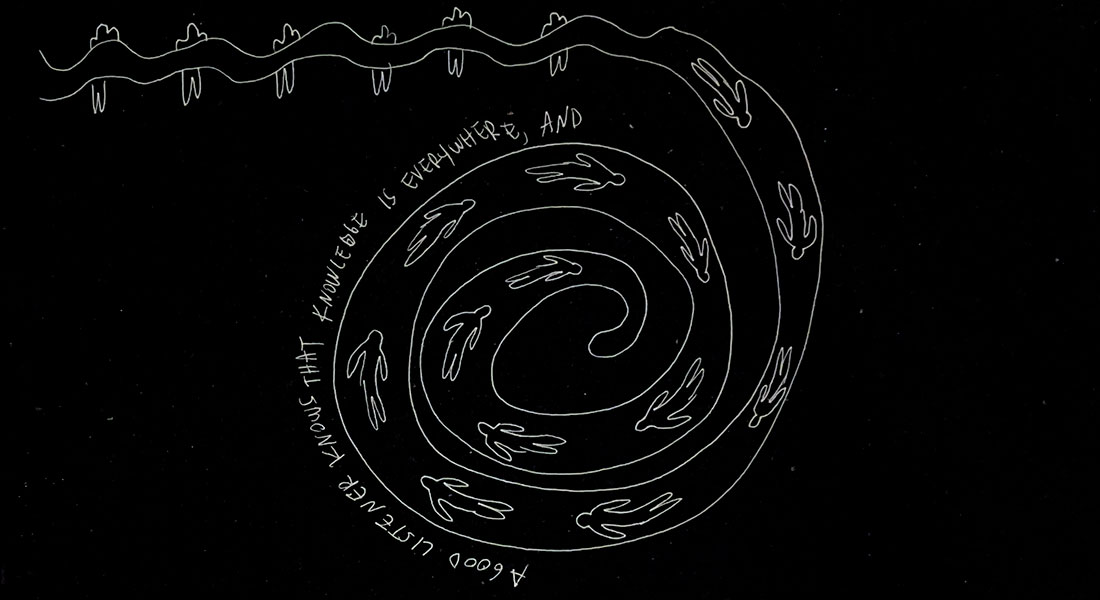 A GOOD LISTENER KNOWS THAT KNOWLEDGE IS EVERYWHERE, AND